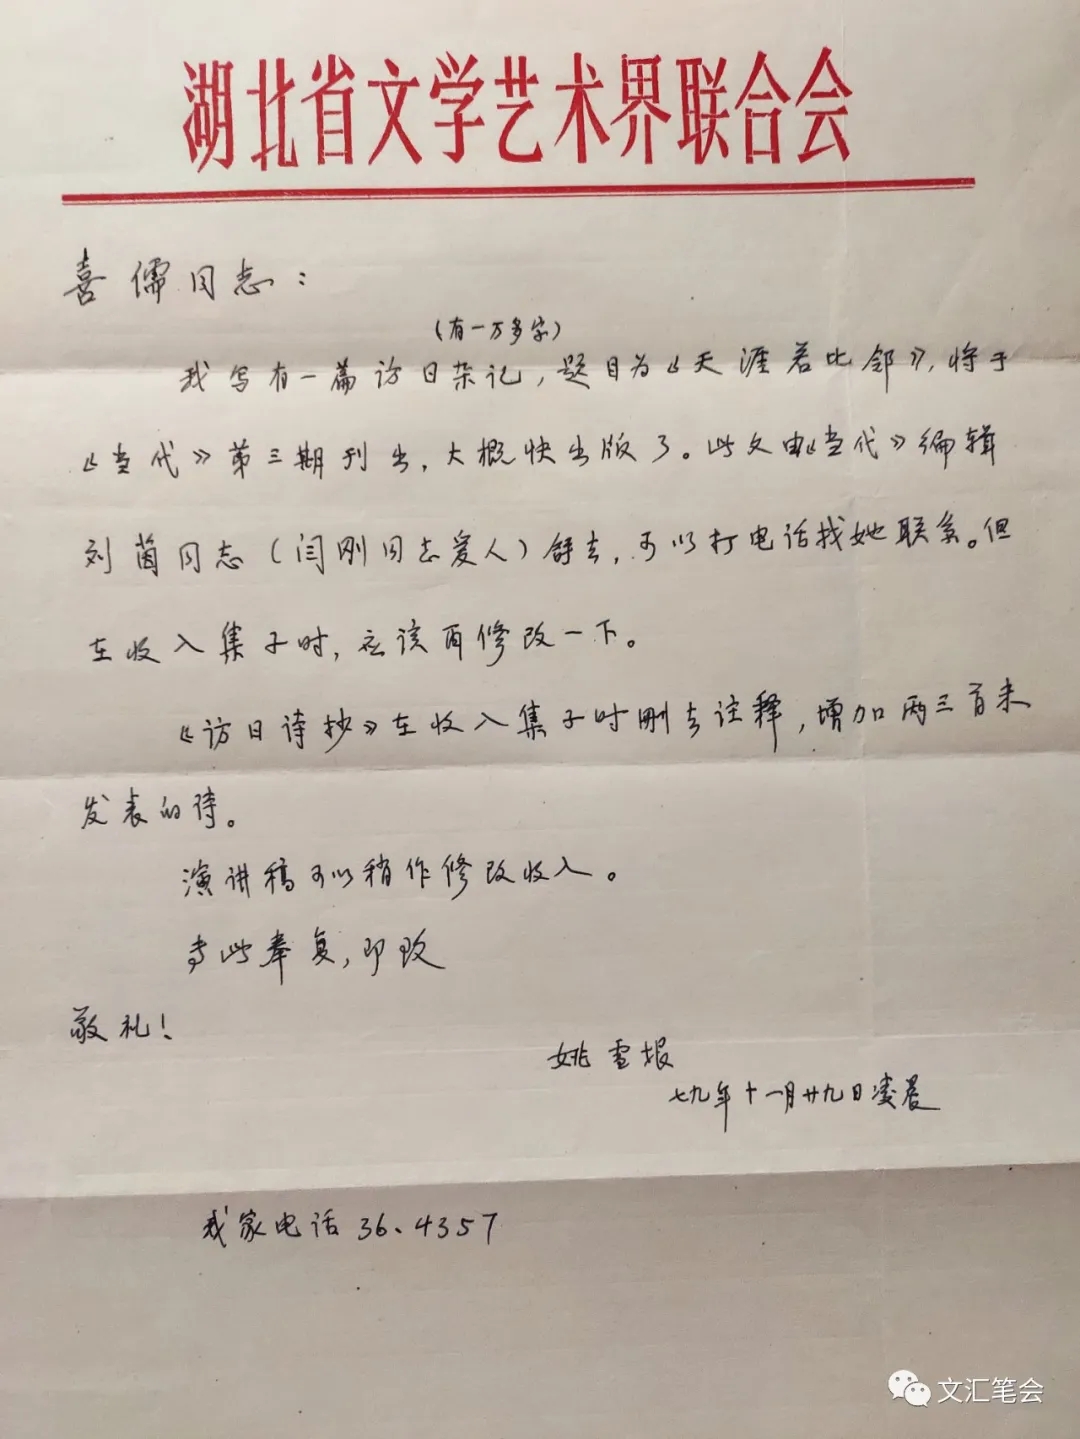 湖北省文学艺术界联合会
喜儒同志：
(有一万多字)
我写有一篇访日杂记，题目为《天涯若比邻》，将于
《当代》第三期刊出，大概快出版了。此文由《当代》编辑
刘茵同志（闫刚同志爱人）辞去，可以打电话找她联系。但
在收入集子时，应该再修改一下。
《访日诗抄》在收入集子时删去注释，增加两三首未
发表的诗。
演讲稿可以稍作修改收入。
专此奉复，即致
敬礼！
姚雪垠
七九年十一月廿九日凌晨
我家电话 36.4357
文汇笔会